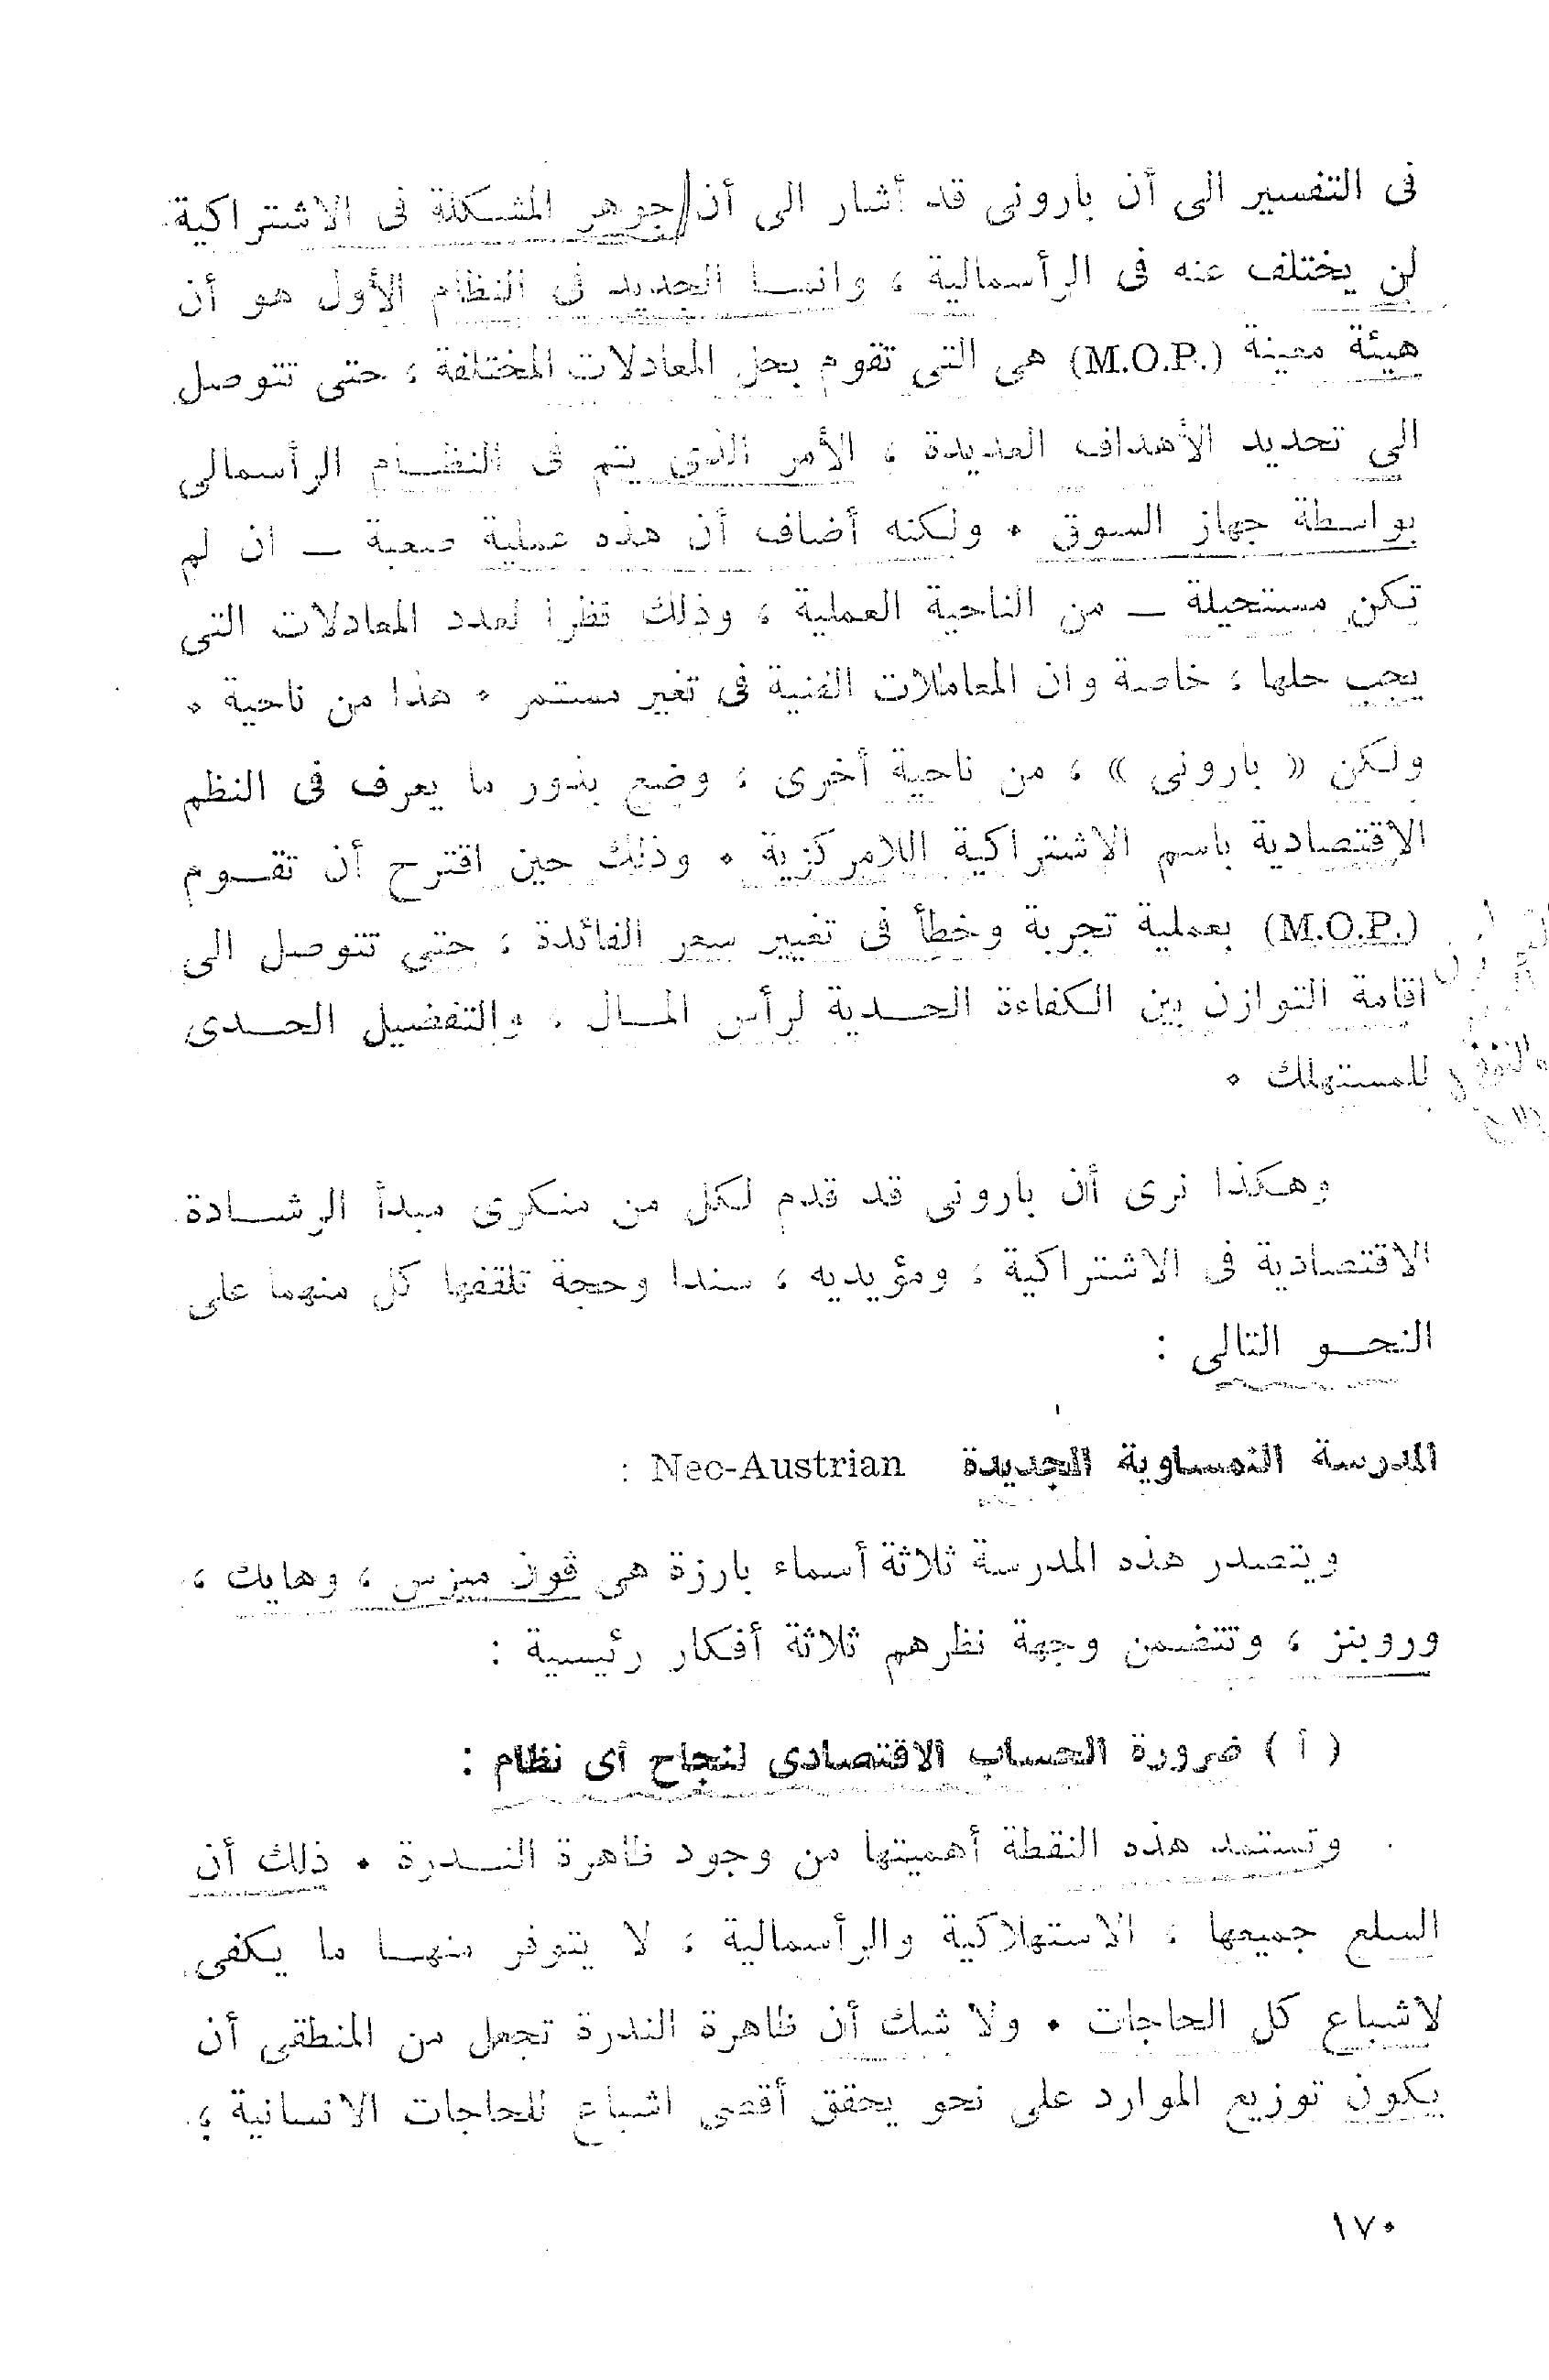 فى التفسير الى أن بارونى قد أشار الى أن جوهر المشكلة فى الاشتراكية
لن يختلف عنه فى الرأسمالية ، وانما الجديد فى النظام الأول هو أن
هيئة معينة (M.O.P.) هى التى تقوم بحل المعادلات المختلفة ، حتى تتوصل
الى تحديد الأهداف العديدة ، الأمر الذى يتم فى النظام الرأسمالى
بواسطة جهاز السوق . ولكنه أضاف أن هذه عملية صعبة — ان لم
تكن مستحيلة — من الناحية العملية ، وذلك نظرا لعدد المعادلات التى
يجب حلها ، خاصة وان المعاملات الفنية فى تغير مستمر . هذا من ناحية .
ولكن « بارونى » ، من ناحية أخرى ، وضع بذور ما يعرف فى النظم
الاقتصادية باسم الاشتراكية اللامركزية . وذلك حين اقترح أن تقوم
(M.O.P.) بعملية تجربة وخطأ فى تغيير سعر الفائدة ، حتى تتوصل الى
اقامة التوازن بين الكفاءة الحدية لرأس المال ، والتفضيل الحدى
للمستهلك .
وهكذا نرى أن بارونى قد قدم لكل من منكرى مبدأ الرشادة
الاقتصادية فى الاشتراكية ، ومؤيديه ، سندا وحجة تلقفها كل منهما على
النحو التالى :
المدرسة النمساوية الجديدة Neo-Austrian :
ويتصدر هذه المدرسة ثلاثة أسماء بارزة هى ڤون ميزس ، وهايك ،
وروبنز ، وتتضمن وجهة نظرهم ثلاثة أفكار رئيسية :
( أ ) ضرورة الحساب الاقتصادى لنجاح أى نظام :
وتستمد هذه النقطة أهميتها من وجود ظاهرة الندرة . ذلك أن
السلع جميعها ، الاستهلاكية والرأسمالية ، لا يتوفر منها ما يكفى
لاشباع كل الحاجات . ولا شك أن ظاهرة الندرة تجعل من المنطقى أن
يكون توزيع الموارد على نحو يحقق أقصى اشباع للحاجات الانسانية ،
١٧٠